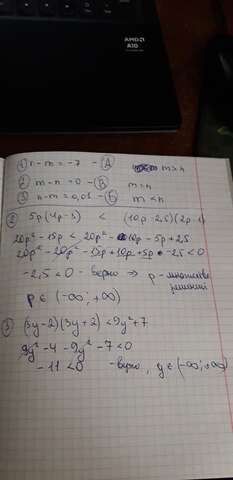 AMD
A10
① n-m = -7 - Ⓐ m>n
② m-n = 0 - Ⓑ m=n
③ n-m=0,05 - Ⓑ m<n
② 5p(4p-3) < (10p-2,5)(2p-1)
20p²-15p < 20p²-10p-5p+2,5
20p²-20p²-15p+10p+5p-2,5<0
-2,5<0 - верно ⇒ p-множество
решений
p∈(-∞;+∞)
③ (3y-2)(3y+2)<9y²+7
9y²-4-9y²-7<0
-11<0 -верно, y∈(-∞;+∞)